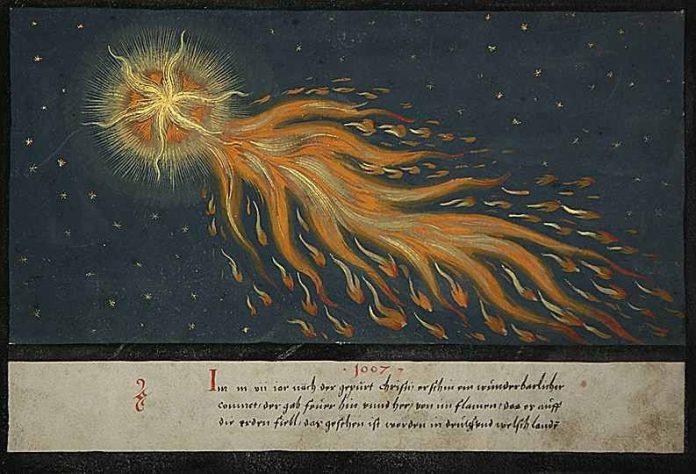 · 1007 ·
Im m vii iar nach der gepurt christi erschin ein wunderbarlicher
commet, der gab feuer hin unnd her, von im flamen, das er auff
die erden fiehl, das gesehen ist worden in deutsch und welsch landt